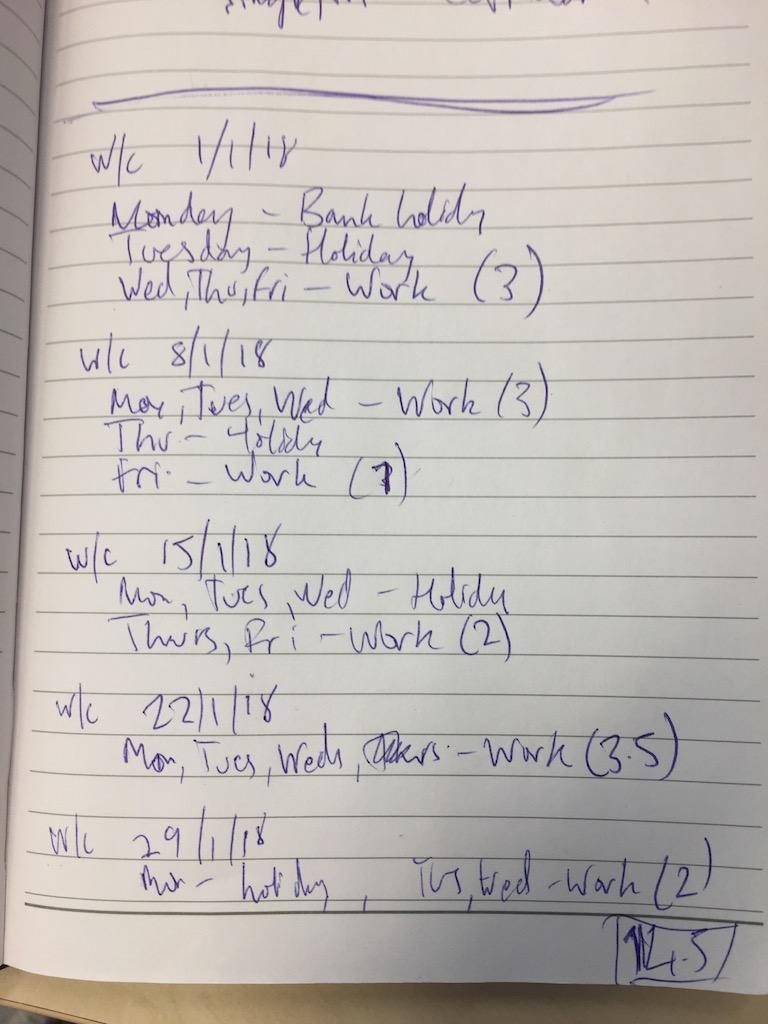 w/c 1/1/18
Monday - Bank holidy
Tuesday - Holiday
Wed, Thu, Fri - Work (3)
w/c 8/1/18
Mon, Tues, Wed - Work (3)
Thu - Holidy
Fri - Work (1)
w/c 15/1/18
Mon, Tues, Wed - Holidy
Thurs, Fri - Work (2)
w/c 22/1/18
Mon, Tues, Weds, Thurs - Work (3.5)
w/c 29/1/18
Mon - holiday, Tus, Wed - Work (2)
14.5